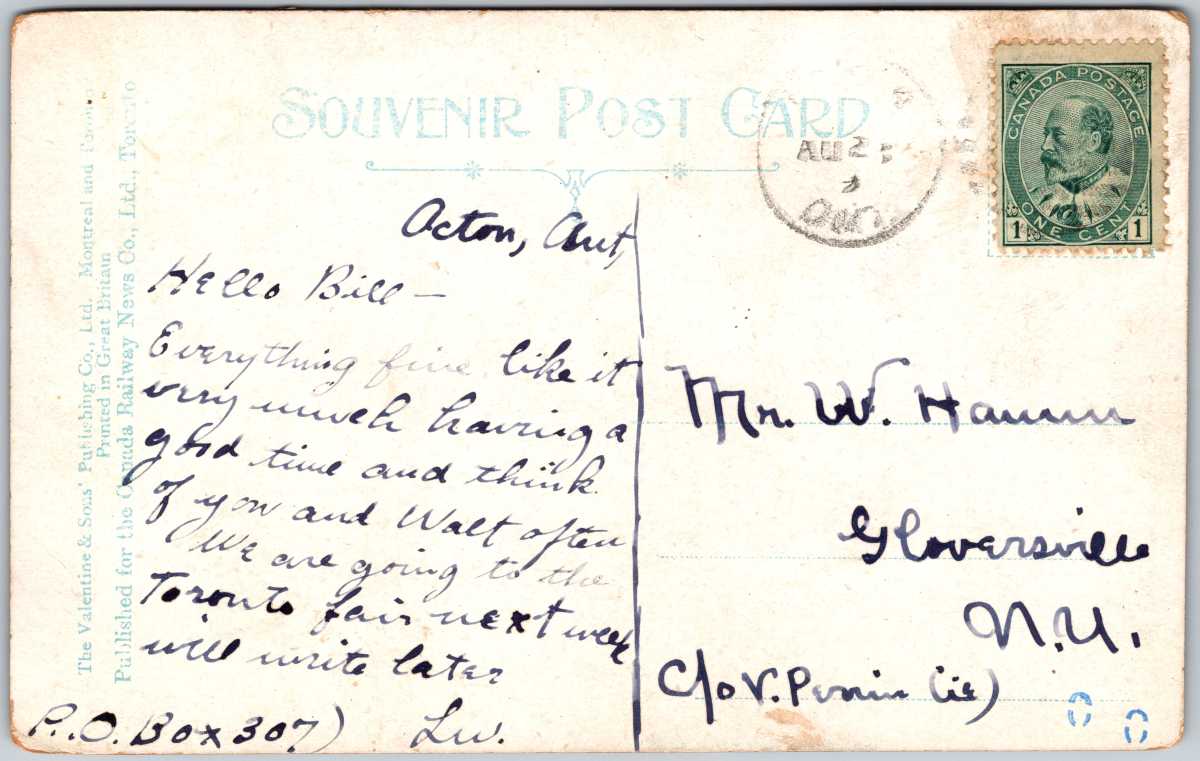 SOUVENIR POST CARD
The Valentine & Sons' Publishing Co., Ltd. Montreal and
Printed in Great Britain
Published for the Canada Railway News Co., Ltd., Toronto
AU 2
ONT
CANADA POSTAGE
1 ONE CENT 1
Acton, Ont,
Hello Bill —
Everything fine, like it
very much having a
good time and think
of you and Walt often
We are going to the
Toronto fair next week
will write later
P.O. Box 307)
Lew.
Mr. W. Hamm
Gloversville
N.Y.
C/o V. Perrin